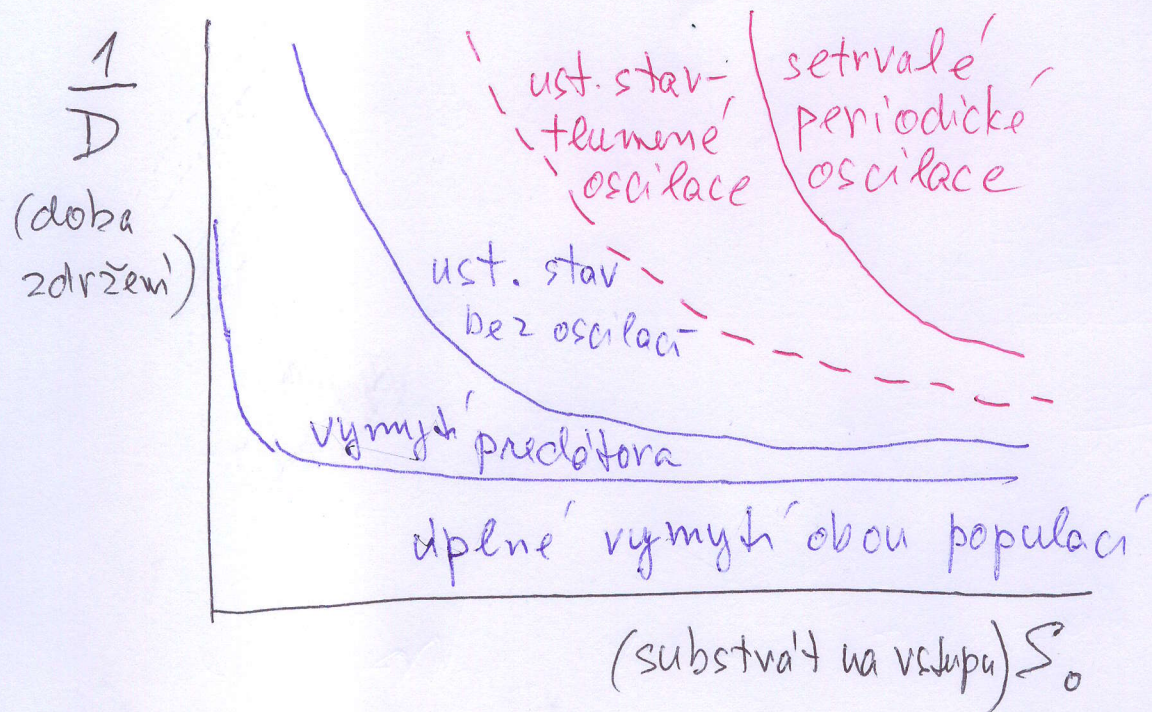 1
D
(doba
zdržení)
ust. stav-
tlumené
oscilace
setrvalé
periodické
oscilace
ust. stav
bez oscilací
vymytí predátora
úplné vymytí obou populací
(substrát na vstupu) S₀